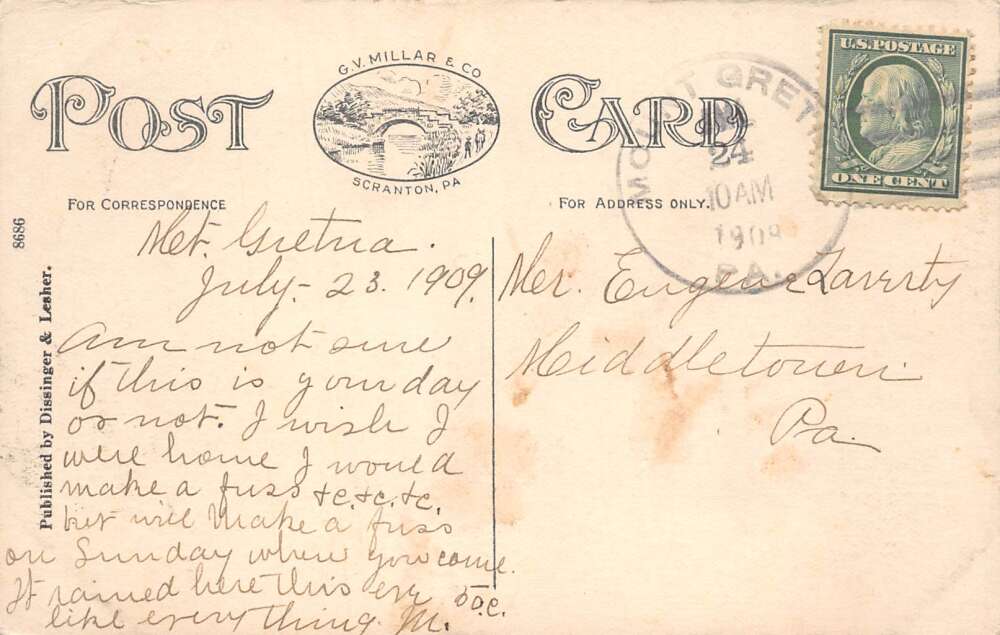 POST CARD
G.V. MILLAR & CO
SCRANTON, PA
FOR CORRESPONDENCE
FOR ADDRESS ONLY.
U.S. POSTAGE
ONE CENT
MOUNT GRETN
24
10 AM
1909
PA.
8686
Published by Dissinger & Lesher.
Mt. Gretna.
July - 23. 1909.
Am not sure
if this is your day
or not. I wish I
were home I would
make a fuss &c. &c. &c.
but will make a fuss
on Sunday when you come.
It rained here this eve
like everything. M.
Mr. Eugene Laverty
Middletown.
Pa.